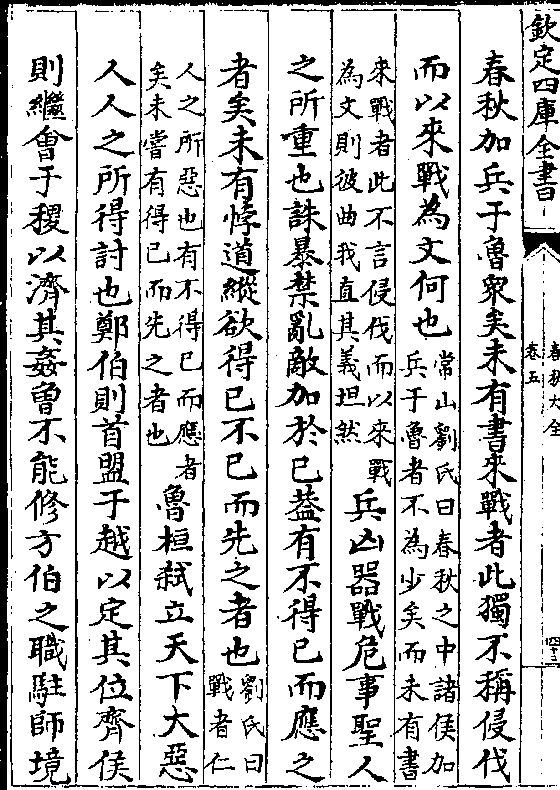 欽定四庫全書
春秋大全
卷五
四十三
春秋加兵于魯衆矣未有書來戰者此獨不稱侵伐
而以來戰為文何也
常山劉氏曰春秋之中諸侯加
兵于魯者不為少矣而未有書
來戰者此不言侵伐而以來戰
為文則彼曲我直其義坦然
兵凶器戰危事聖人
之所重也誅暴禁亂敵加於已葢有不得已而應之
者矣未有悖道縱欲得已不已而先之者也
劉氏曰
戰者仁
人之所惡也有不得已而應者
矣未嘗有得已而先之者也
魯桓弑立天下大惡
人人之所得討也鄭伯則首盟于越以定其位齊侯
則繼㑹于稷以濟其姦魯不能修方伯之職駐師境